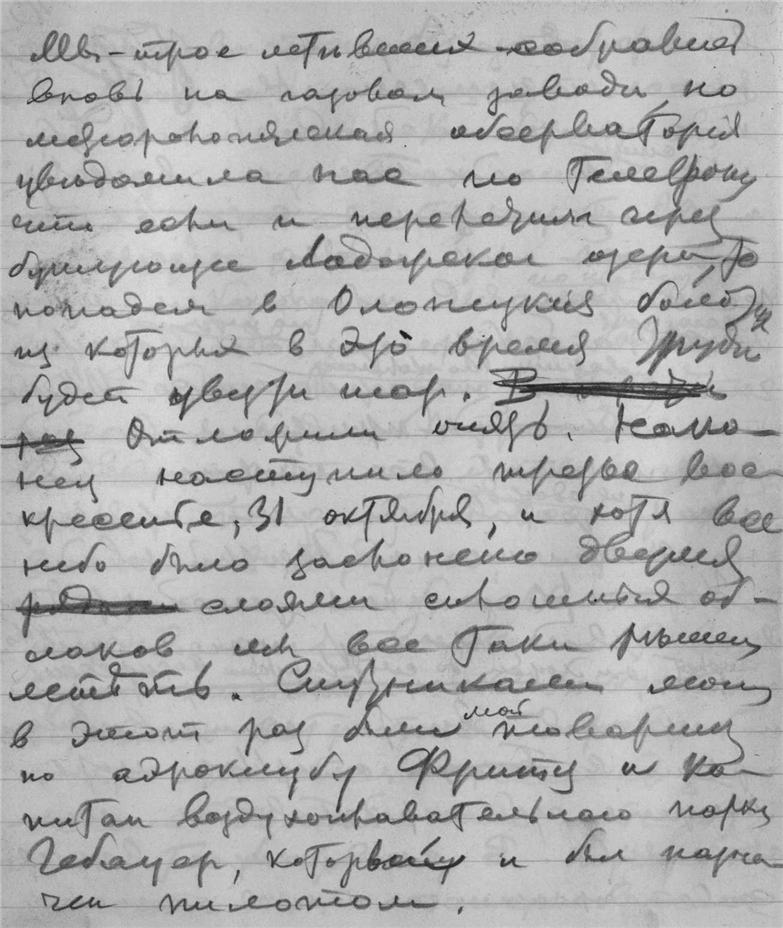 Мы - трое летивших собрались
вновь на газовом заводе, но
метеорологическая обсерваторія
уведомила нас по телефону
что если и перелетим через
бушующее Ладожское озеро, то
попадем в Олонецкия болота
из которых в это время трудно
будет увезти шар.
Отложили опять. Нако-
нец наступило третье вос-
кресенье, 31 октября, и хотя все
небо было заслонено двумя
слоями сплошных об-
лаков мы все таки решили
лететь. Спутниками моими
в этот раз были мой товарищ
по аэроклубу Фрити и ка-
питан воздухоплавательного парка
Гебауер, который и был назна-
чен пилотом.